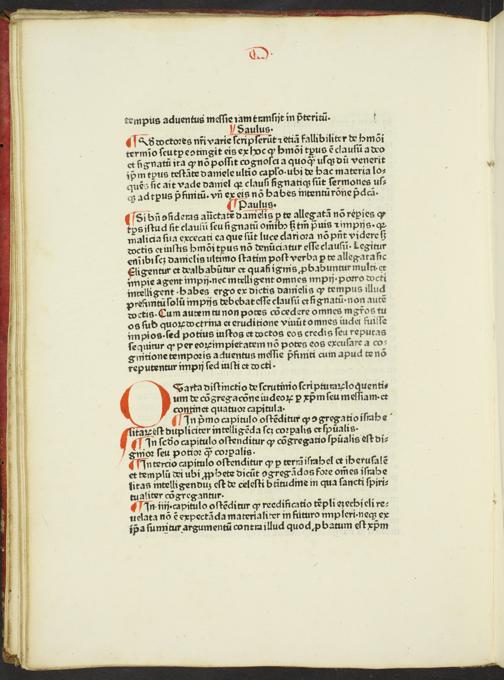 tempus aduentus messie iam transijt in p̃teritũ.
Saulus.
Sꝫ doctores nr̃i varie scripserũt ⁊ etiã fallibiliter de hmõi
termĩo seu tꝑe cõtingit eis ex hoc ꝙ hmõi tꝑus ẽ clausũ a deo
et signatũ ita ꝙ nõ possit cognosci a quoqͣꝫ usqꝫ dũ venerit
ip̃m tꝑus testãte daniele ultio capl̃o. ubi de hac materia lo-
quẽs sic ait vade daniel ꝙ clausi signatiqꝫ sũt sermones us-
qꝫ ad tꝑus p̃finitũ. vñ ex eis nõ habes intentũ rõne p̃dcã.
Paulus.
Si bñ cõsideras auctãte danielis ꝑ te allegatã nõ reꝑies ꝙ
tꝑs istud sit clausũ seu signatũ omĩbꝫ sꝫ tm̃ prauis ⁊ impijs. ꝙ
malicia sua excecati ea que sũt luce clariora nõ pñt videre sꝫ
doctis et iustis hmõi tꝑus nõ denũciatur esse clausũ. Legitur
em̃ ibi scꝫ danielis ultimo statim post verba ꝑ te allegata sic
Eligentur et dealbabũtur et quasi ignis ꝓbabuntur multi. et
impie agent impij. nec intelligent omnes impij. porro docti
intelligent. habes ergo ex dictis danielis ꝙ tempus illud
presinitũ solũ impijs debebat esse clausũ et signatũ. non autẽ
doctis. Cum autem tu non potes cõcedere omnes mgr̃os tu
os sub quoꝝ doctrina et eruditione viuũt omnes iudei fuisse
impios. sed potius iustos et doctos eos credis seu reputas
sequitur ꝙ per eoꝝ impietatem nõ potes eos excusare a co-
gnitione temporis aduentus messie p̃finiti cum apud te nõ
reputentur impij sed iusti et docti.
Quarta distinctio de scrutinio scripturaꝝ loquentiũ
de cõgregacõne iudeoꝝ ꝑ xp̃m seu messiam. et
continet quatuor capitula.
In p̃mo capitulo ostẽditur ꝙ cõgregatio israhe-
litaꝝ est dupliciter intelligẽda scꝫ corꝑalis et spũalis.
In scdo capitulo ostenditur ꝙ cõgregatio spũalis est di-
gnior seu potior ꝙ corꝑalis.
In tercio capitulo ostẽditur ꝙ ꝑ terrã israhel et iherusalẽ
et templũ dei ubi ꝓphete dicũt cõgregãdos fore om̃es israhe
litas intelligendũ est de celesti btitudine in qua sancti spiri-
tualiter cõgregantur.
In .iiij. capitulo ostẽditur ꝙ reedificatio tẽpli ezechieli re-
uelata nõ ẽ expectãda materialiter in futuro impleri. neqꝫ ex
ip̃a sumitur argumentũ contra illud quod ꝓbatum est xp̃m